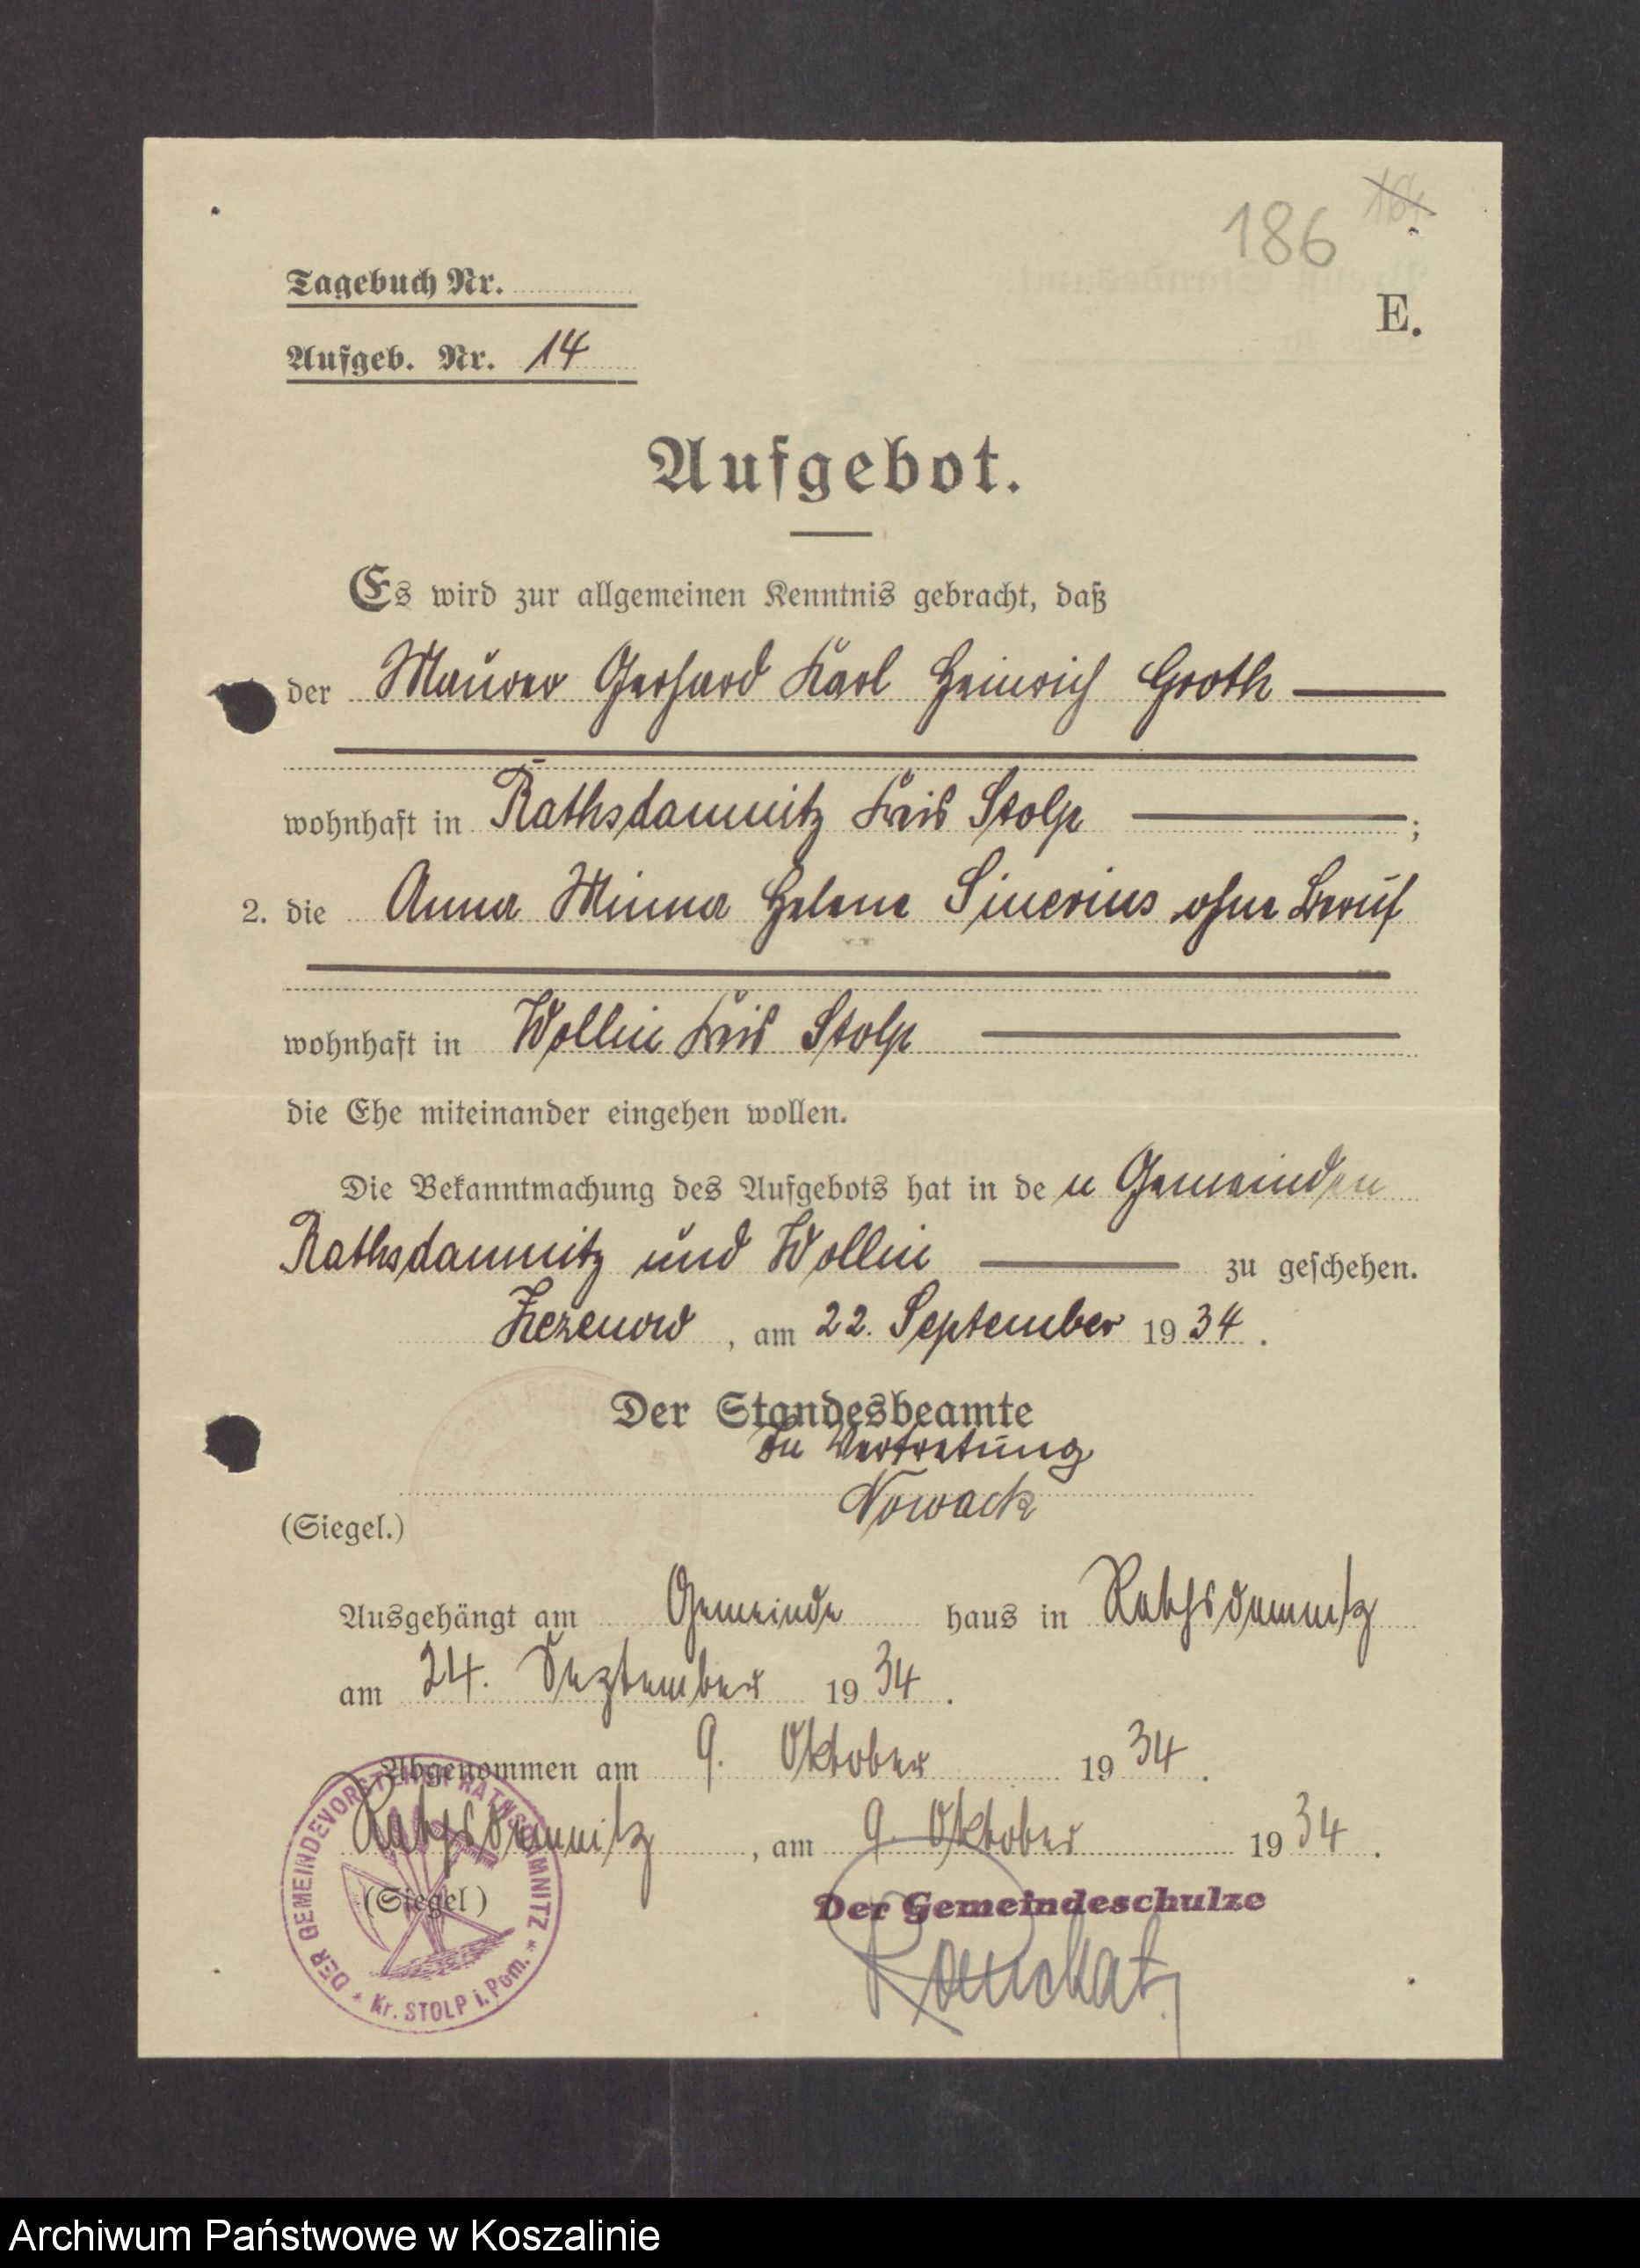 186 164
Tagebuch Nr.
E.
Aufgeb. Nr. 14
Aufgebot.
Es wird zur allgemeinen Kenntnis gebracht, daß
der Maurer Gerhard Karl Heinrich Groth
wohnhaft in Rathsdamnitz Kreis Stolp ;
2. die Anna Minna Helene Sinerius ohne Beruf
wohnhaft in Wollin Kreis Stolp
die Ehe miteinander eingehen wollen.
Die Bekanntmachung des Aufgebots hat in de n Gemeinden
Rathsdamnitz und Wollin zu geschehen.
Zezenow, am 22. September 1934.
Der Standesbeamte
In Vertretung
Nowack
(Siegel.)
Ausgehängt am Gemeinde haus in Rathsdamnitz
am 24. September 1934.
Abgenommen am 9. Oktober 1934.
Rathsdamnitz, am 9. Oktober 1934.
(Siegel)
DER GEMEINDEVORSTEHER RATHSDAMNITZ * Kr. STOLP i. Pom. *
Der Gemeindeschulze
Archiwum Państwowe w Koszalinie